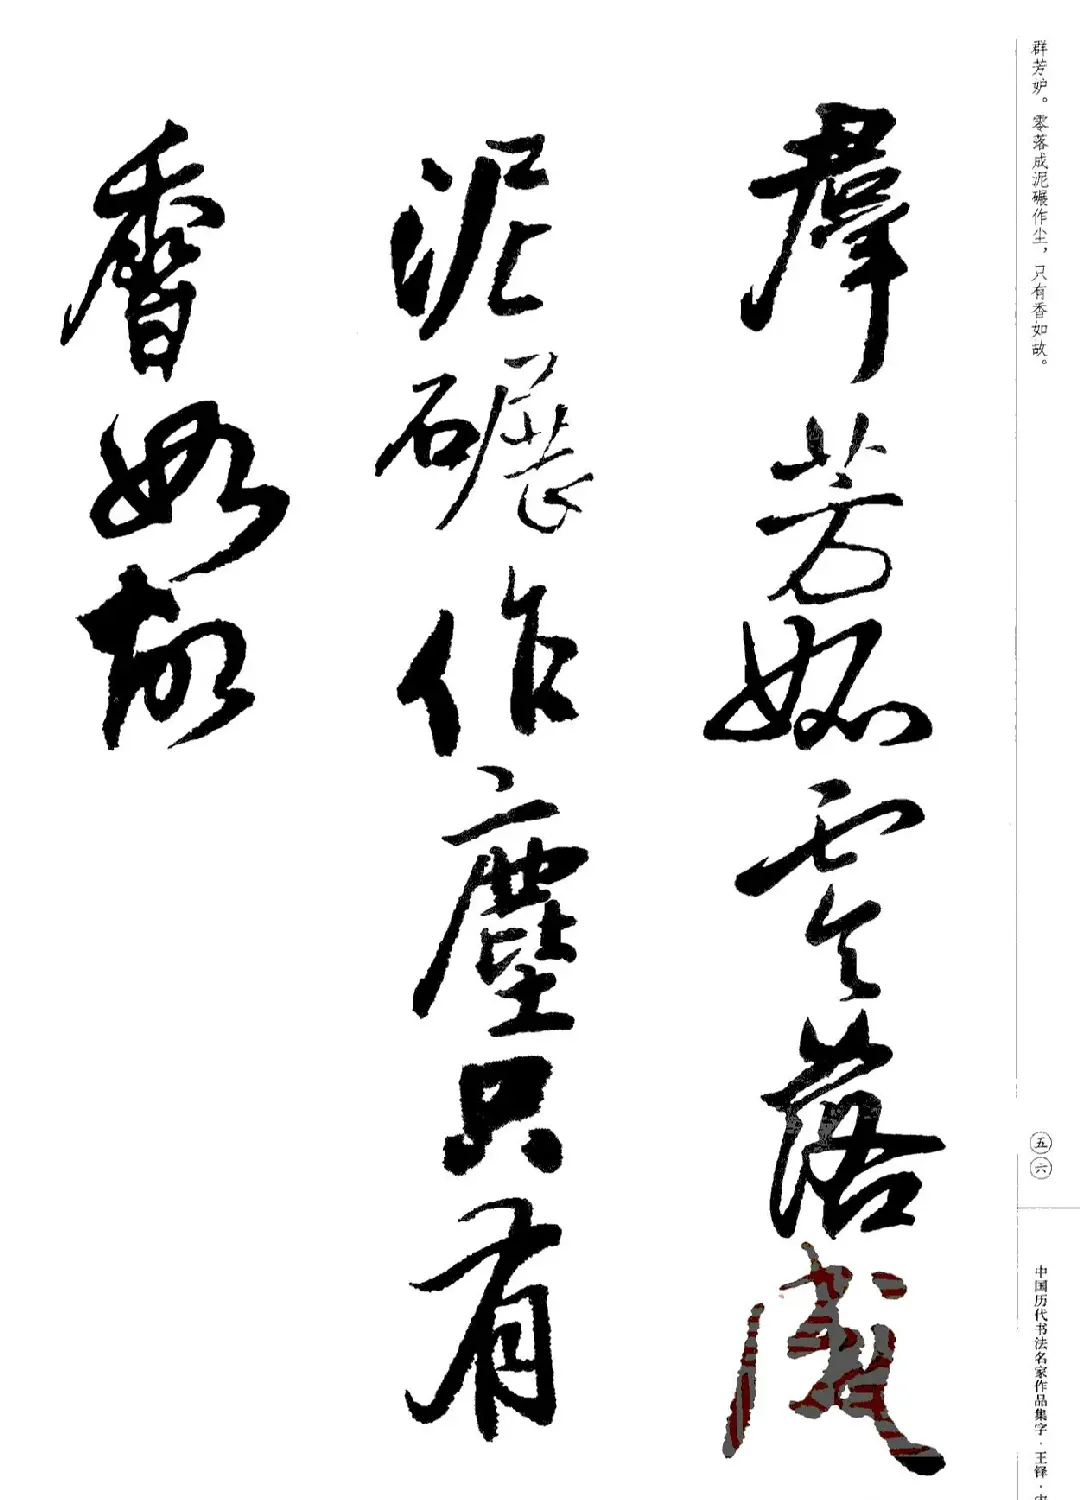 群芳妒。零落成泥碾作尘，只有香如故。
羣芳妬零落成
泥碾作塵只有
香如故
五六
中国历代书法名家作品集字·王铎·